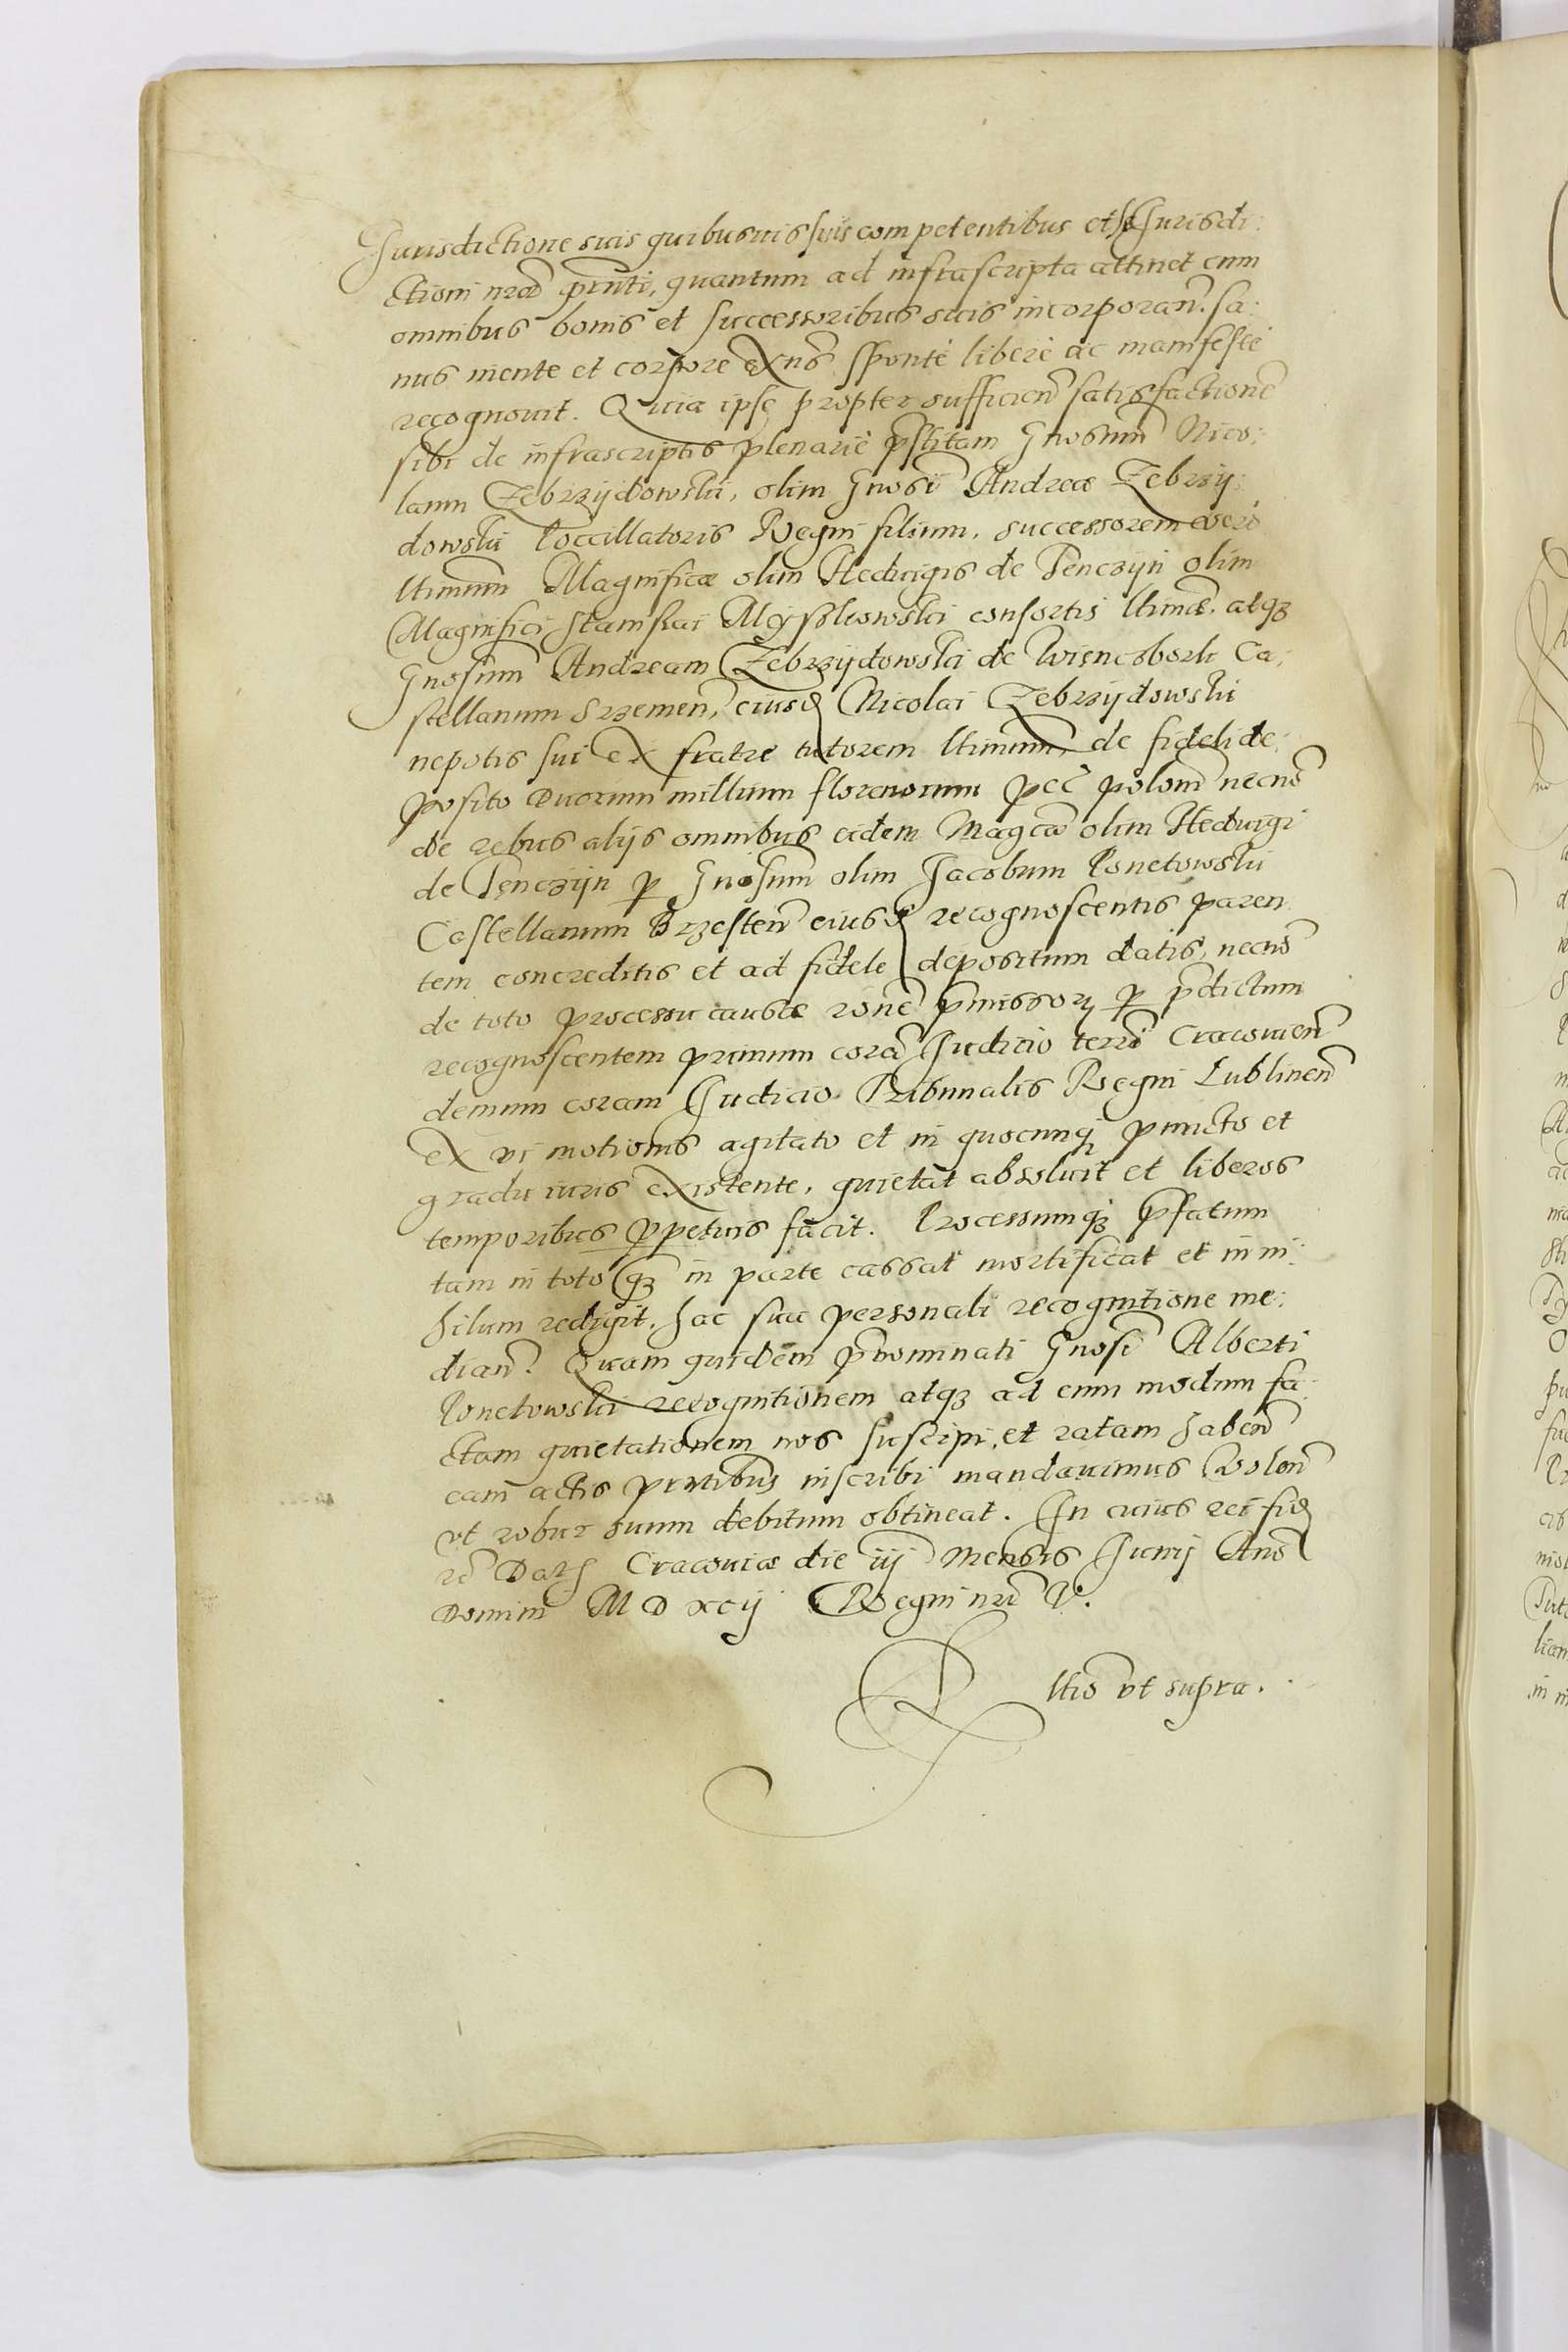 Jurisdictione suis quibusuis suis competentibus et se Jurisdi:
ctioni nrae pnti, quantum ad infrascripta attinet cum
omnibus bonis et successoribus suis incorporan. sa:
nus mente et corpore exns sponte libere ac manifeste
recognouit. Quia ipse propter sufficien satisfactione
sibi de infrascriptis plenarie pstitam Gnosum Nico:
laum Zebrzydowski, olim Gnosi Andreae Zebrzy:
dowski Poccillatoris Regni filium, successorem vero
ltimum Magnificae olim Hedwigis de Tenczyn olim
Magnifici Stanislai Myszkowski consortis ltimae. atqz
Gnosum Andream Zebrzydowski de Wienczbork Ca:
stellanum Srzemen, eiusd Nicolai Zebrzydowski
nepotis sui ex fratre tutorem ltimum, de fideli de:
posito Duorum millium florenorum pec polon necno
de rebus alijs omnibus eidem Magcae olim Hedwigi
de Tenczyn p Gnosum olim Jacobum Ponetowski
Castellanum Brzesten eiusd recognoscentis paren
tem concreditis et ad fidele depositum datis, necno
de toto processu causae rone pmissor p pdictum
recognoscentem primum cora Judicio terri Cracouien
demum coram Judicio Tribunalis Regni Lublinen
ex vi motionis agitato et in quocunq puncto et
gradu iuris existente, quietat absoluit et liberos
temporibus ppetuis facit. Processumqz pfatum
tam in toto qz in parte cassat mortificat et in ni:
hilum redigit, hac sua personali recognitione me:
dian. Quam quidem pnominati Gnosi Alberti
Ponetowski recognitionem atqz ad eum modum fa:
ctam quietationem nos suscipi, et ratam haben
eam actis pntibus inscribi mandauimus Volen
vt robur suum debitum obtineat. In cuius rei fid
re Dat Cracouiae die iij Mensis Junij Ano
Domini M D xcij Regni nri V.
Rltio vt supra.